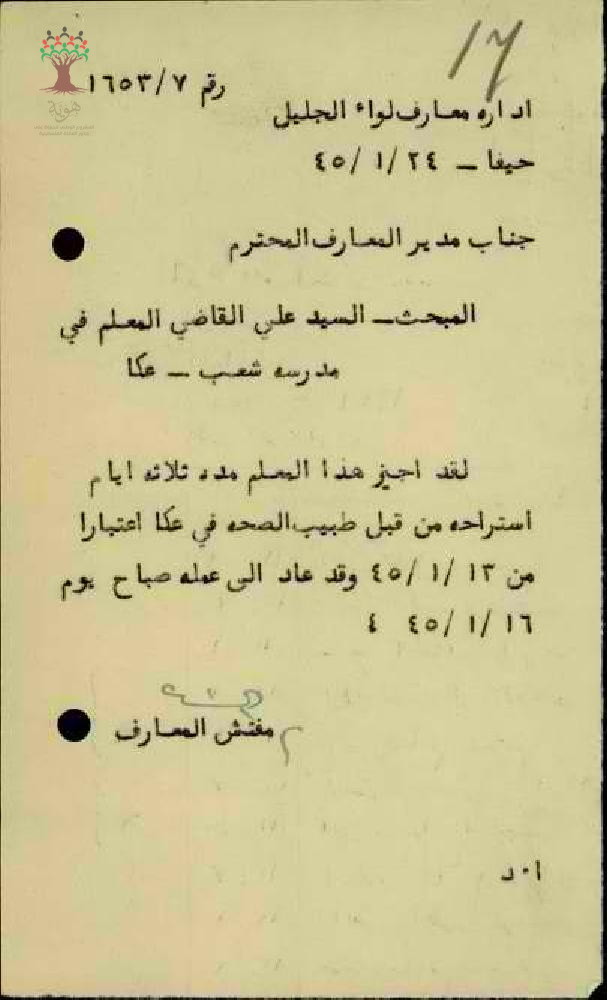 ١٧
رقم ١٦٥٣/٧
اداره معارف لواء الجليل
حيفا ــ ٢٤ /١ /٤٥
جناب مدير المعارف المحترم
المبحث ــ السيد علي القاضي المعلم في
مدرسه شعب ــ عكا
لقد اجيز هذا المعلم مده ثلاثه ايام
استراحه من قبل طبيب الصحه في عكا اعتبارا
من ١٣ /١ /٤٥ وقد عاد الى عمله صباح يوم
١٦ /١ /٤٥ ٤
مفتش المعارف
ا٠د
هوية